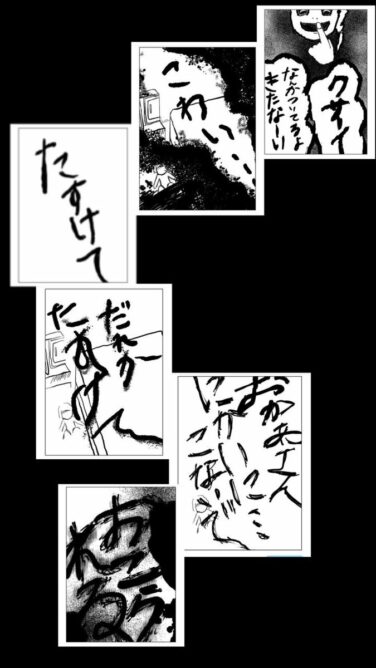 クサイ
なんかついてるよ
きたなーい
こわい...
たすけて
だれか
たすけて
おかあさん
にかいに
こない
おこら
れる